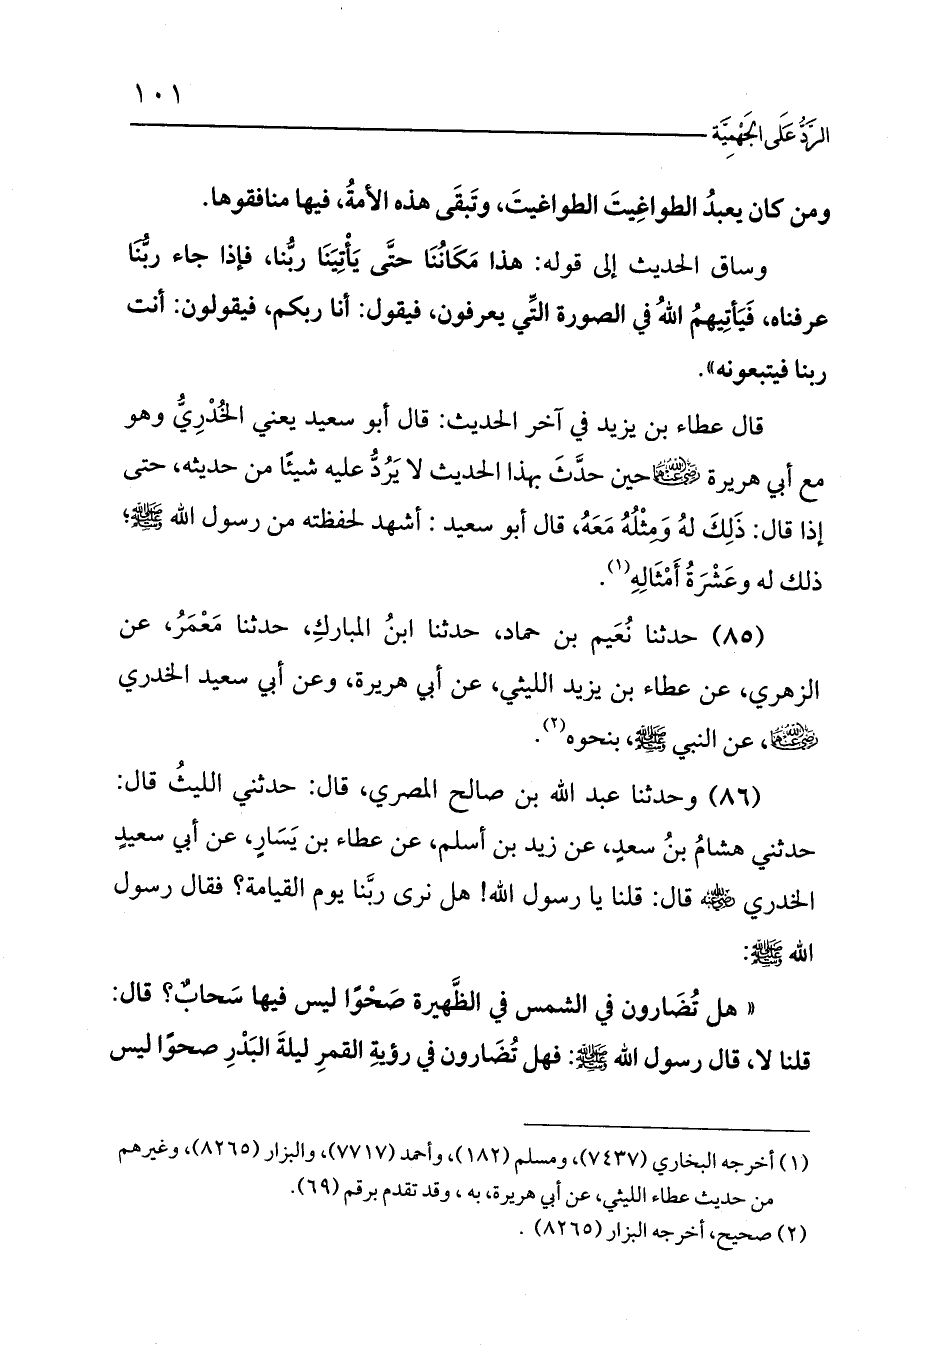 ١٠١
الرَّدُّ عَلَى الجَهْمِيَّة
ومن كان يعبدُ الطواغِيتَ الطواغيتَ، وتَبقَى هذه الأمةُ، فيها منافقوها.
وساق الحديث إلى قوله: هذا مَكَانُنَا حتَّى يَأْتِيَنَا ربُّنا، فإذا جاء ربُّنَا
عرفناه، فَيَأتِيهمُ اللهُ في الصورة التَّي يعرفون، فيقول: أنا ربكم، فيقولون: أنت
ربنا فيتبعونه».
قال عطاء بن يزيد في آخر الحديث: قال أبو سعيد يعني الخُدْرِيُّ وهو
مع أبي هريرة ﵄ حين حدَّثَ بهذا الحديث لا يَرُدُّ عليه شيئًا من حديثه، حتى
إذا قال: ذَلِكَ لهُ وَمِثْلُهُ مَعَهُ، قال أبو سعيد : أشهد لحفظته من رسول الله ﷺ؛
ذلك له وعَشْرَةُ أَمْثَالِهِ(١).
(٨٥) حدثنا نُعَيم بن حماد، حدثنا ابنُ المباركِ، حدثنا مَعْمَرُ، عن
الزهري، عن عطاء بن يزيد الليثي، عن أبي هريرة، وعن أبي سعيد الخدري
﵄، عن النبي ﷺ، بنحوه(٢).
(٨٦) وحدثنا عبد الله بن صالح المصري، قال: حدثني الليثُ قال:
حدثني هشامُ بنُ سعدٍ، عن زيد بن أسلم، عن عطاء بن يَسَارٍ، عن أبي سعيدٍ
الخدري ﵁ قال: قلنا يا رسول الله! هل نرى ربَّنا يوم القيامة؟ فقال رسول
الله ﷺ:
« هل تُضَارون في الشمس في الظَّهيرة صَحْوًا ليس فيها سَحابٌ؟ قال:
قلنا لا، قال رسول الله ﷺ: فهل تُضَارون في رؤيةِ القمرِ ليلةَ البَدْرِ صحوًا ليس
(١) أخرجه البخاري (٧٤٣٧)، ومسلم (١٨٢)، وأحمد (٧٧١٧)، والبزار (٨٢٦٥)، وغيرهم
من حديث عطاء الليثي، عن أبي هريرة، به ، وقد تقدم برقم (٦٩).
(٢) صحيح، أخرجه البزار (٨٢٦٥) .